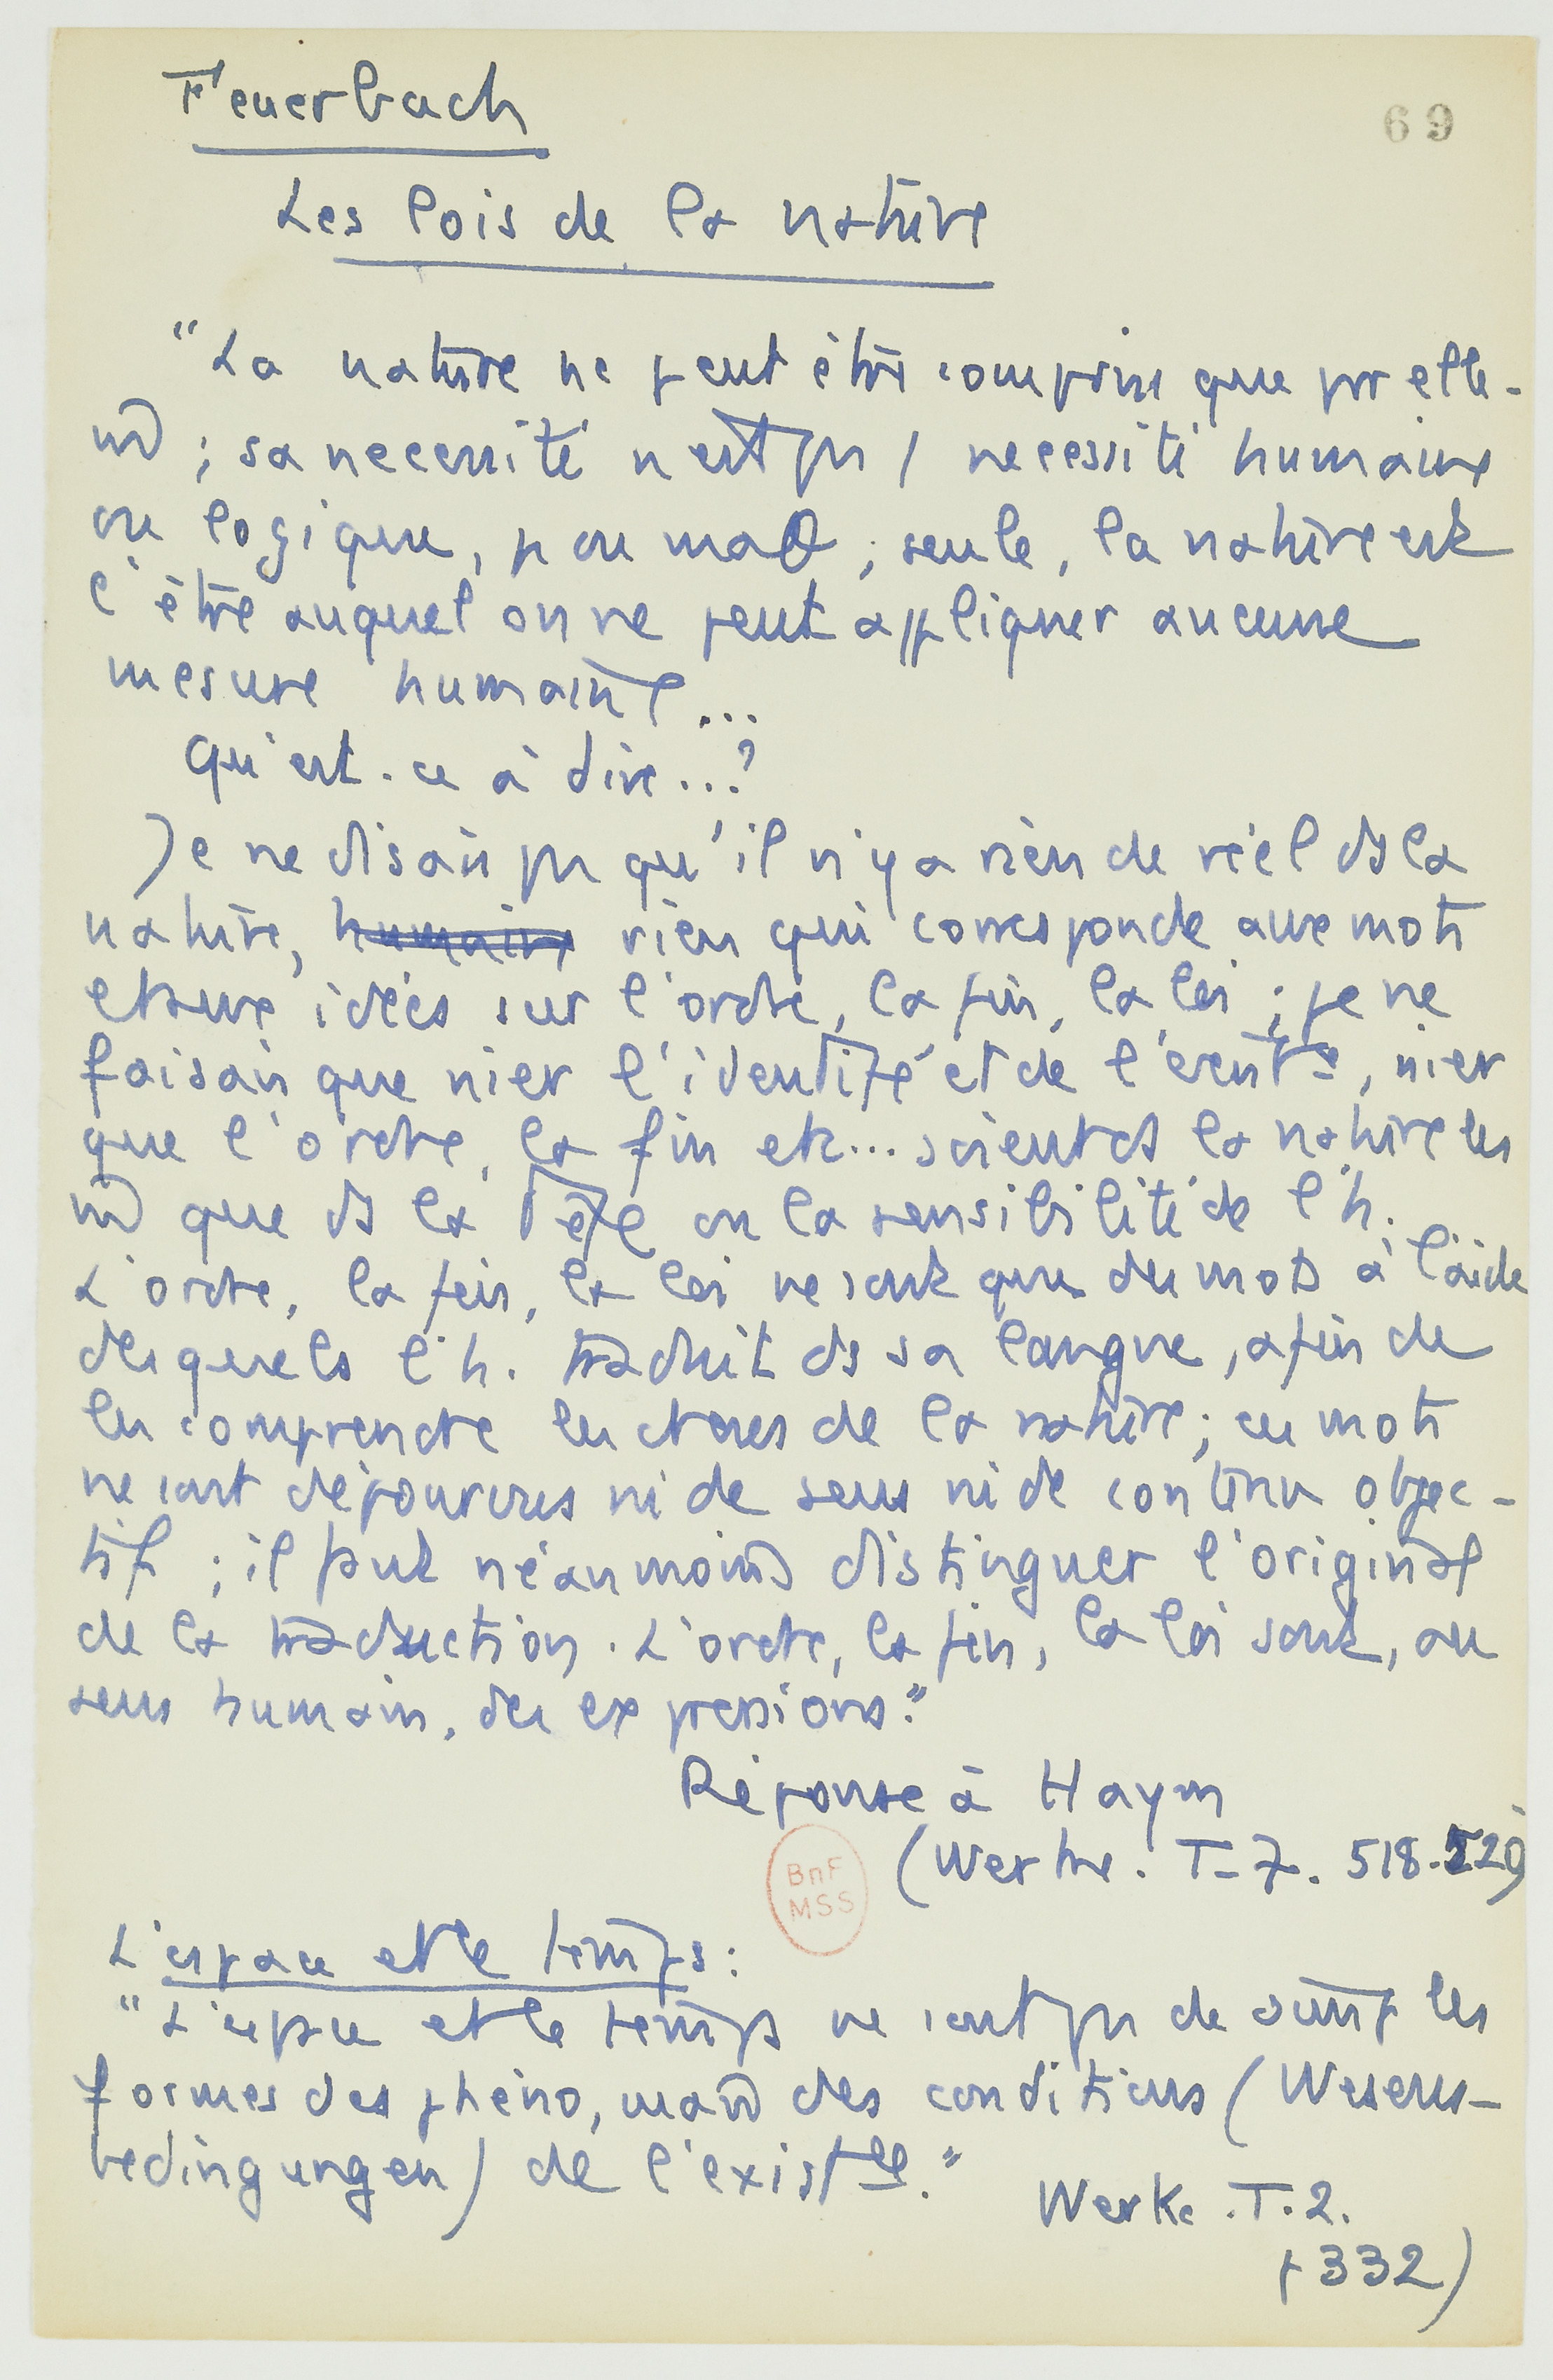 Feuerbach
69
Les lois de la nature
"La nature ne peut être comprise que par elle-
m̂ ; sa necessité n'est pas / necessité humaine
ou logique, ou ; seule, la nature est
l'être auquel on ne peut appliquer aucune
mesure humaine...
Qu'est-ce à dire...?
Je ne disais pas qu'il n'y a rien de réel ds la
nature, humaine rien qui corresponde aux mots
et aux idées sur l'ordre, la fin, la loi ; je ne
faisais que nier l'identité et de l', nier
que l'ordre, la fin etc... soient ds la nature les
m̂ que ds la tête ou la sensibilité de l'h.
L'ordre, la fin, la loi ne sont que des mots à l'aide
desquels l'h. traduit ds sa langue, afin de
les comprendre les choses de la nature ; ces mots
ne sont dépourvus ni de sens ni de contenu objec-
tif ; il faut néanmoins distinguer l'original
de la traduction. L'ordre, la fin, la loi sont, au
sens humain, des expressions."
Réponse à Haym
(Werke. T-7. 518-520)
BnF
MSS
L'espace et le temps :
"L'espace et le temps ne sont pas de simples
formes des phéno, mais des conditions (Wesens-
bedingungen) de l'existce."
Werke. T. 2.
p 332)